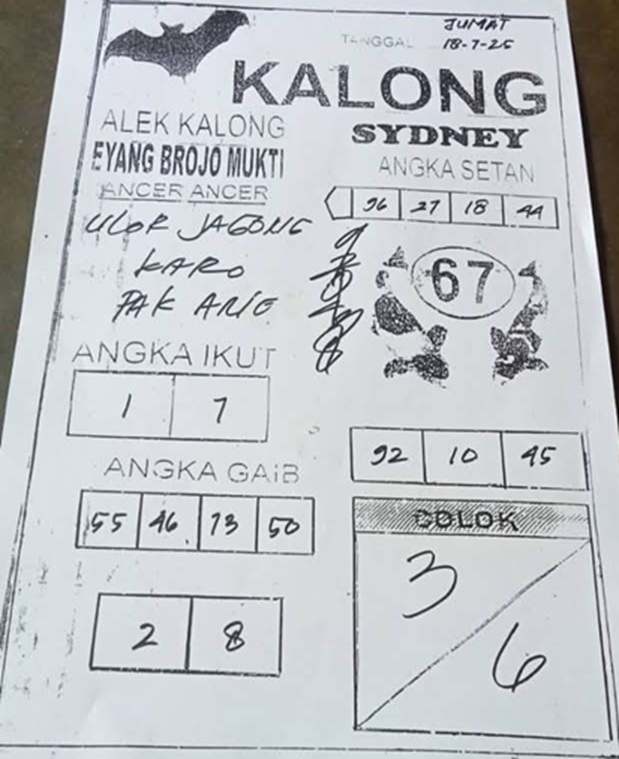 JUMAT
TANGGAL 18-7-25
KALONG
SYDNEY
ALEK KALONG
EYANG BROJO MUKTI
ANCER ANCER
ULOR JAGONG
KARO
PAK ARIE
ANGKA SETAN
96 27 18 44
67
ANGKA IKUT
1 7
ANGKA GAIB
55 46 73 50
2 8
92 10 45
COLOK
3
6